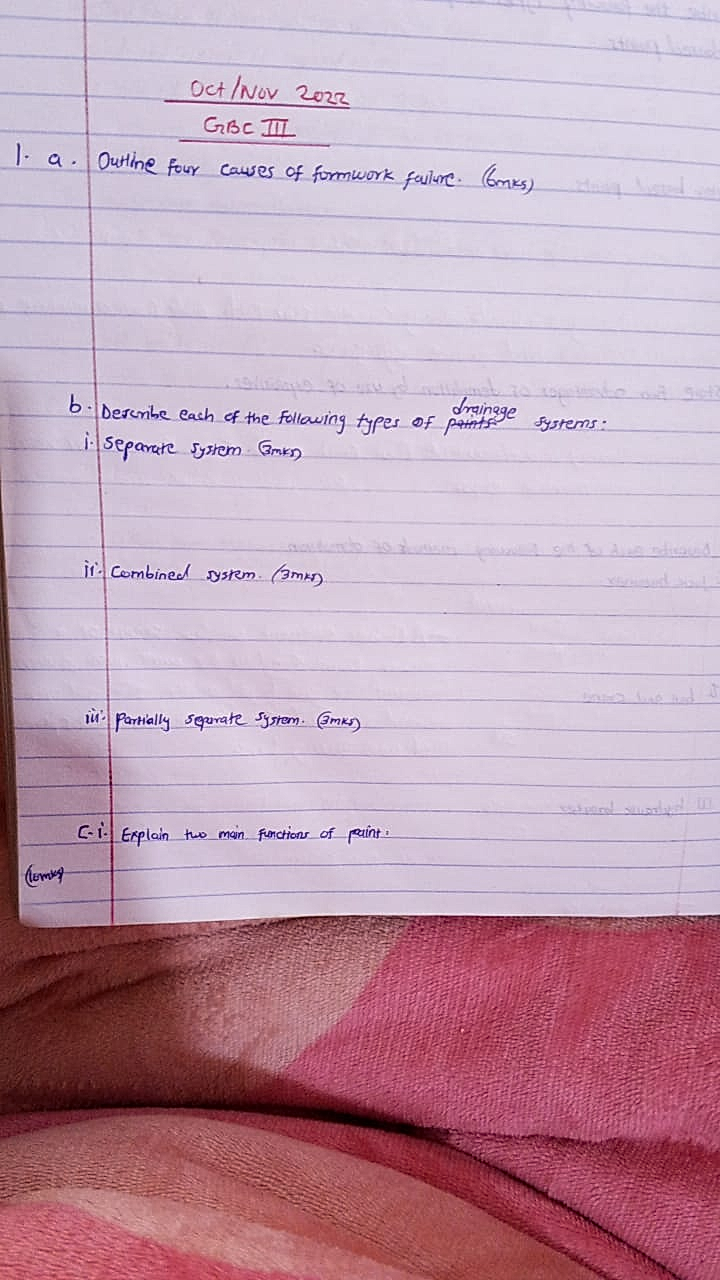 Oct/Nov 2022
GBC III
1. a. Outline four causes of formwork failure. (6mks)
drainage
b. Describe each of the following types of paints systems:
i. Separate system. (3mks)
ii. Combined system. (3mks)
iii. Partially separate system. (3mks)
C. i. Explain two main functions of paint.